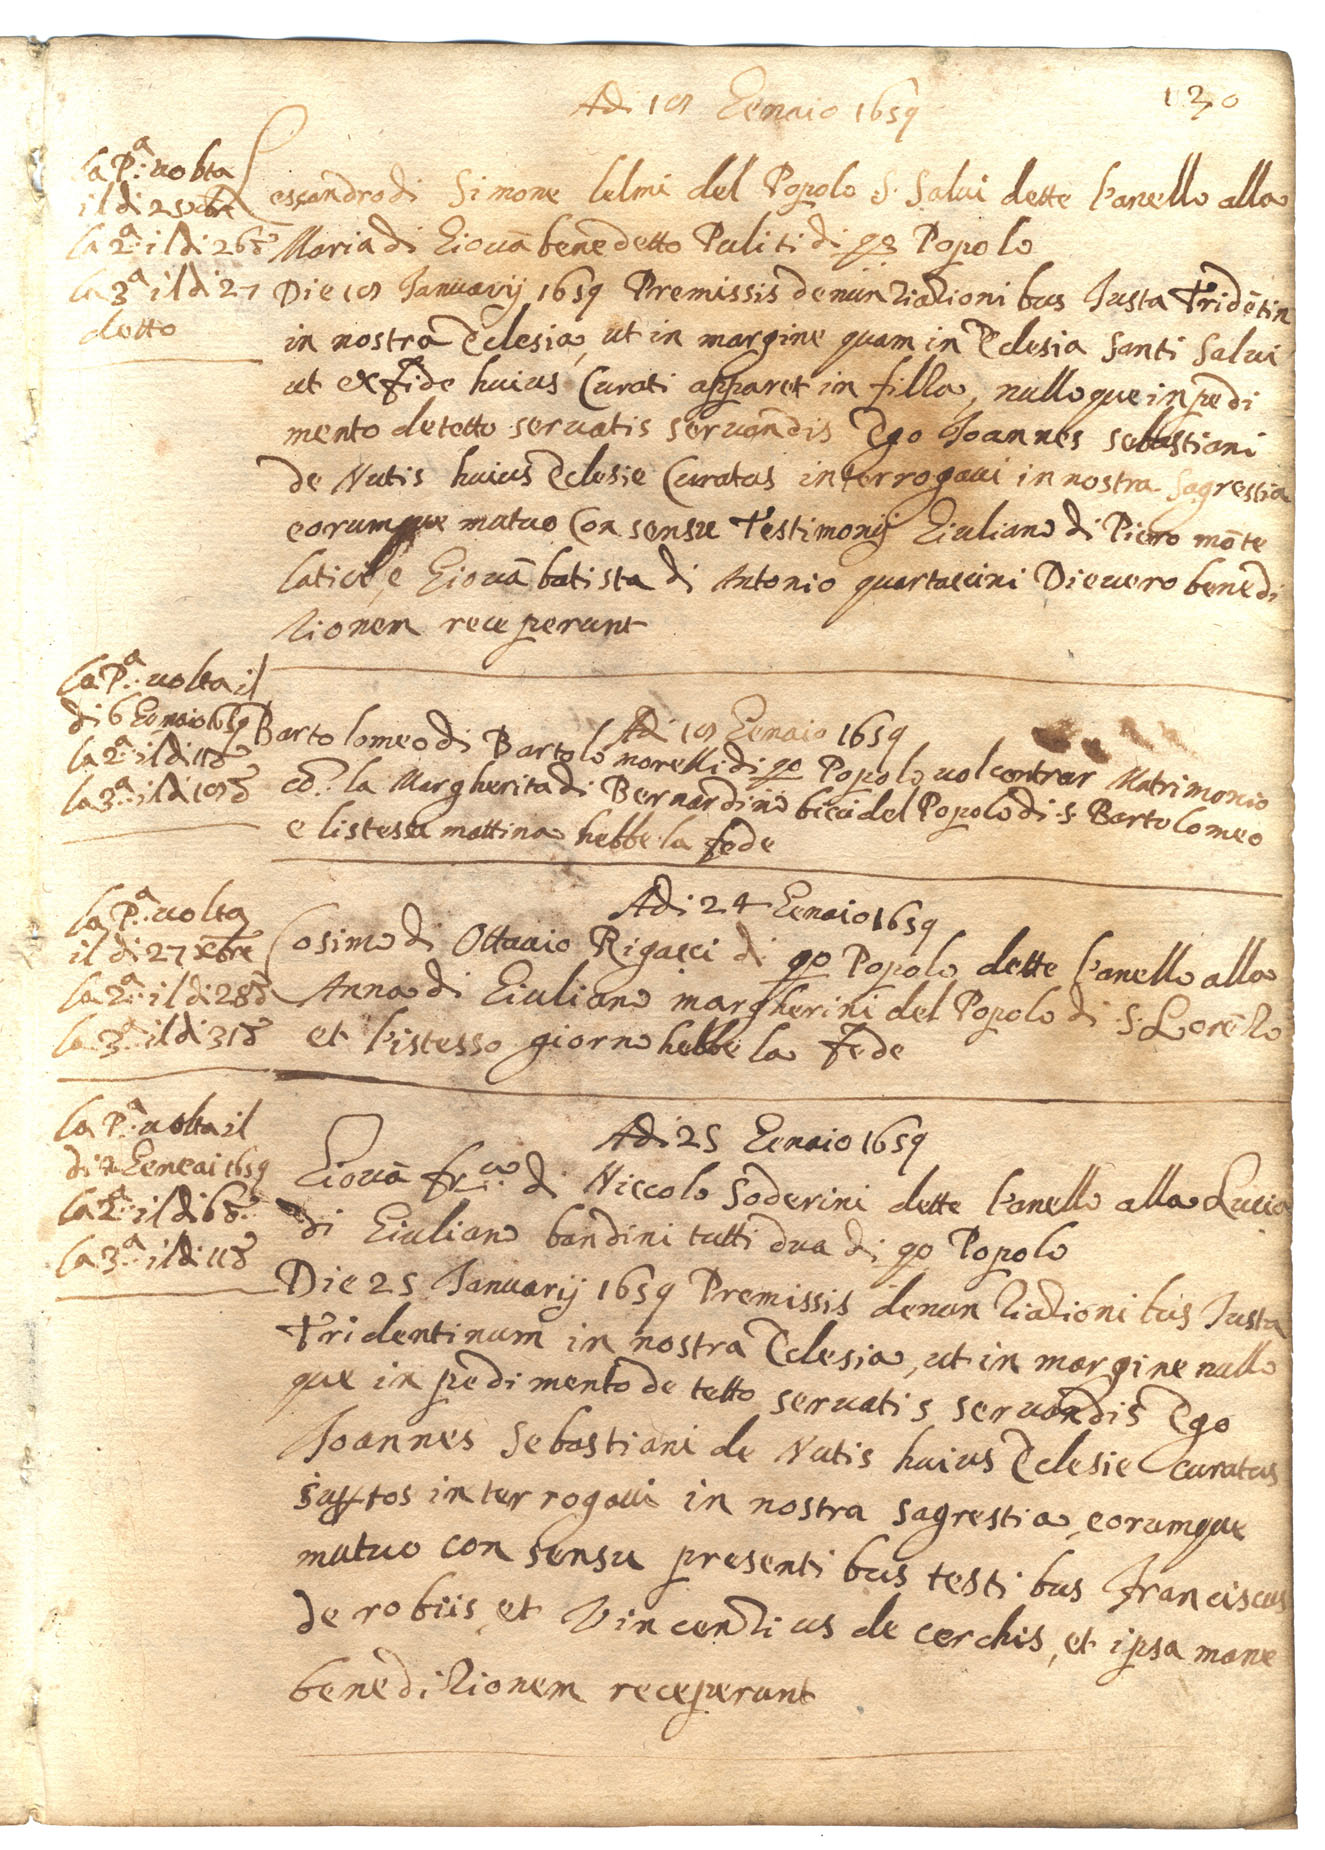 130
Adi 19 Gennaio 1659
la P.a uolta
il di 25 xbre
la 2.a il di 26 d
la 3.a il di 27
detto
Lessandro di Simone lelmi del Popolo S. Salui dette l'anello alla
Maria di Giouā benedetto Puliti di qo Popolo
Die 19 Januarij 1659 Premissis denunziazionibus Iusta Tridētin
in nostra Eclesia, ut in margine quam in Eclesia Santi Salui
ut ex fide huius Curati apparet in filla, nulloque inpedi
mento detetto seruatis seruandis Ego Joannes sebastiani
de Nutis huius Eclesie Curatus interrogaui in nostra Sagrestia
eorumque mutuo Con sensu Testimonij Giuliano di Piero mōte
latici, e Giouā batista di Antonio quartaccini Die uero benedi
zionem receperunt
la P.a uolta il
di 6 Genaio 1659
la 2.a il di 11 d
la 3.a il di 19 d
Adi 19 Genaio 1659
Bartolomeo di Bartolo morelli di qo Popolo uol contrar Matrimonio
cō. la Margherita di Bernardino bicci del Popolo di S. Bartolomeo
e listessa mattina hebbe la fede
la P.a uolta
il di 27 xbre
la 2.a il di 28 d
la 3.a il di 31 d
Adi 24 Genaio 1659
Cosimo di Ottauio Rigacci di qo Popolo dette l'anello alla
Anna di Giuliano margherini del Popolo di S. Lorēzo
et l'istesso giorno hebbe la fede
la P.a uolta il
di 2 Genaio 1659
la 2.a il di 6 d
la 3.a il di 11 d
Adi 25 Genaio 1659
Giouā fr.co di Niccolo Soderini dette l'anello alla Lucia
di Giuliano bandini tutti dua di qo Popolo
Die 25 Januarij 1659 Premissis denunziazionibus Iusta
Tridentinum in nostra Eclesia, ut in margine nullo
que inpedimento detetto seruatis seruandis Ego
Joannes Sebastiani de Nutis huius Eclesie curatus
interrogaui in nostra sagrestia, eorumque
mutuo con sensu presentibus testibus Franciscus
de robiis, et Vincenzius de cerchis, et ipsa mane
benedizionem receperunt